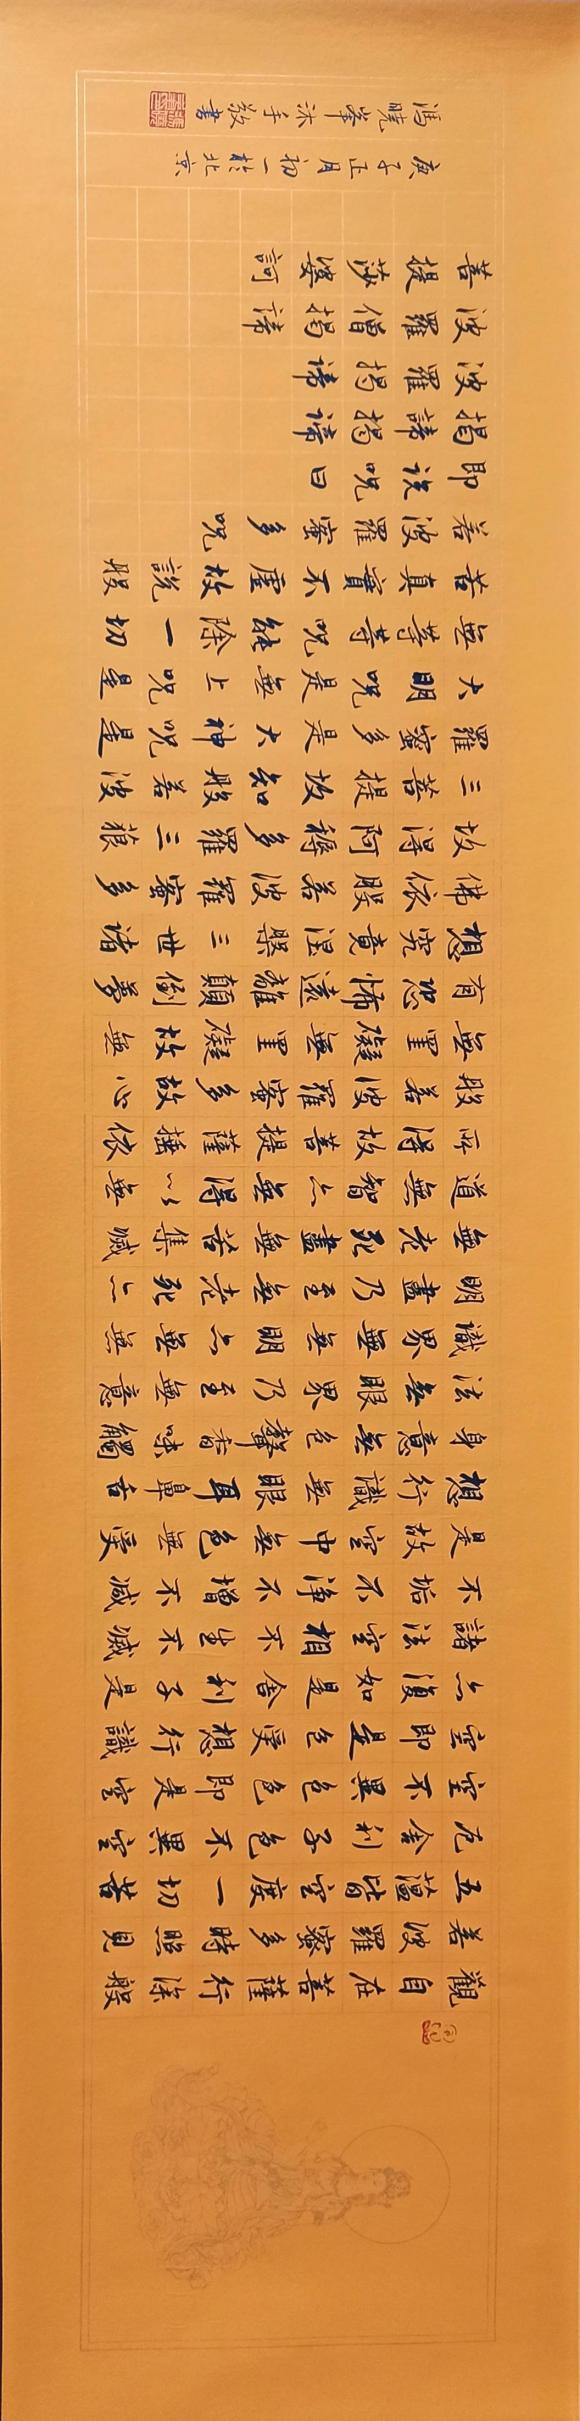 觀自在菩薩行深般
若波羅蜜多時照見
五蘊皆空度一切苦
厄舍利子色不異空
空不異色色即是空
空即是色受想行識
亦復如是舍利子是
諸法空相不生不滅
不垢不淨不增不減
是故空中無色無受
想行識無眼耳鼻舌
身意無色聲香味觸
法無眼界乃至無意
識界無無明亦無無
明盡乃至無老死亦
無老死盡無苦集滅
道無智亦無得以無
所得故菩提薩埵依
般若波羅蜜多故心
無罣礙無罣礙故無
有恐怖遠離顛倒夢
想究竟涅槃三世諸
佛依般若波羅蜜多
故得阿耨多羅三藐
三菩提故知般若波
羅蜜多是大神呪是
大明呪是無上呪是
無等等呪能除一切
苦真實不虛故說般
若波羅蜜多呪
即说呪曰
揭諦揭諦
波羅揭諦
波羅僧揭諦
菩提莎婆訶
庚子正月初一於北京
馮曉峯沐手敬書